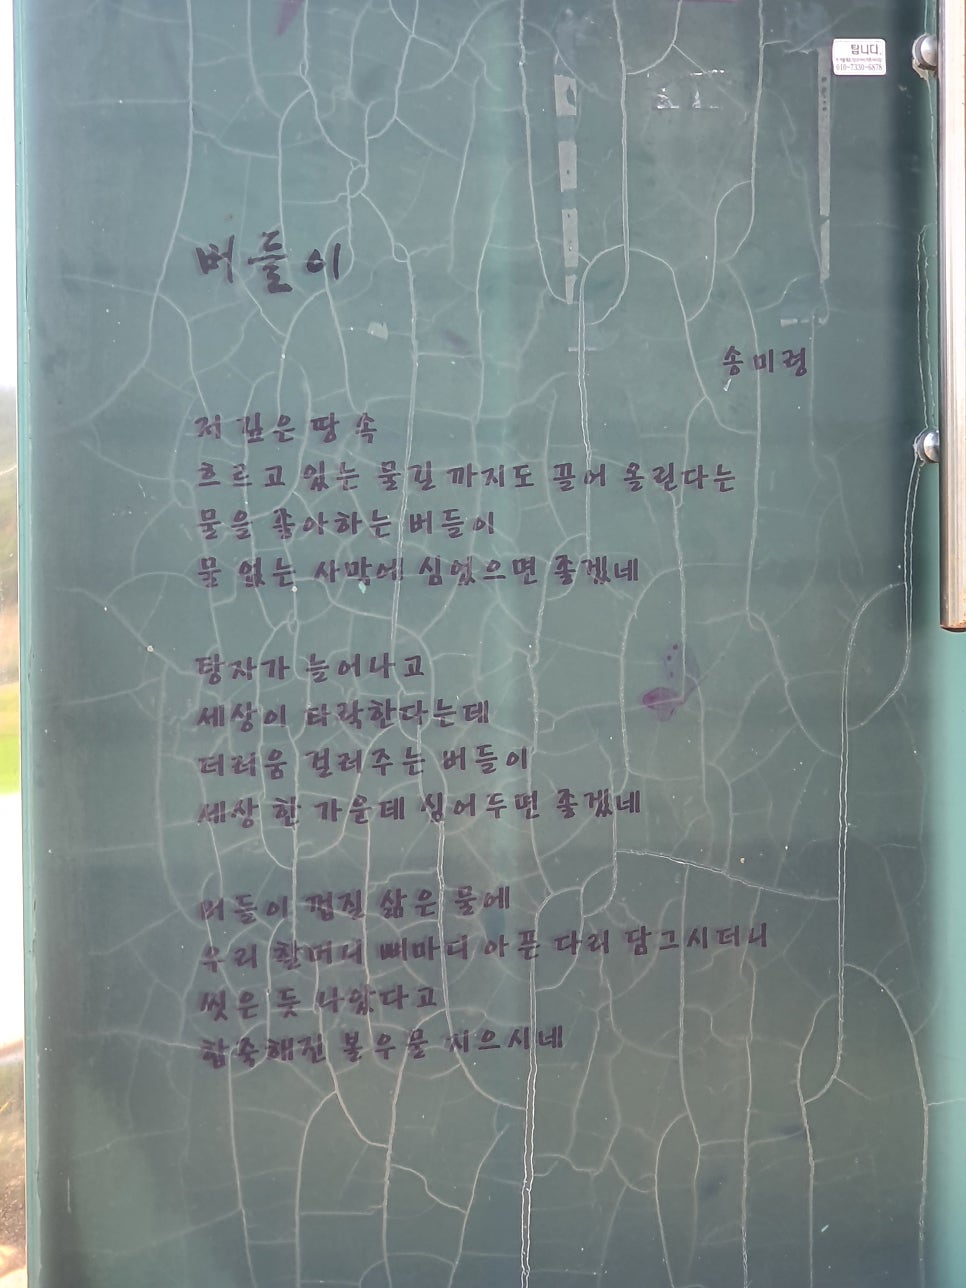 팁니다.
010-7330-6878
버들이
송미령
저 깊은 땅 속
흐르고 있는 물길 까지도 끌어 올린다는
물을 좋아하는 버들이
물 없는 사막에 심었으면 좋겠네
탕자가 늘어나고
세상이 타락한다는데
더러움 걸러주는 버들이
세상 한 가운데 심어두면 좋겠네
버들이 껍질 삶은 물에
우리 할머니 뼈마디 아픈 다리 담그시더니
씻은 듯 나았다고
합죽해진 볼우물 지으시네